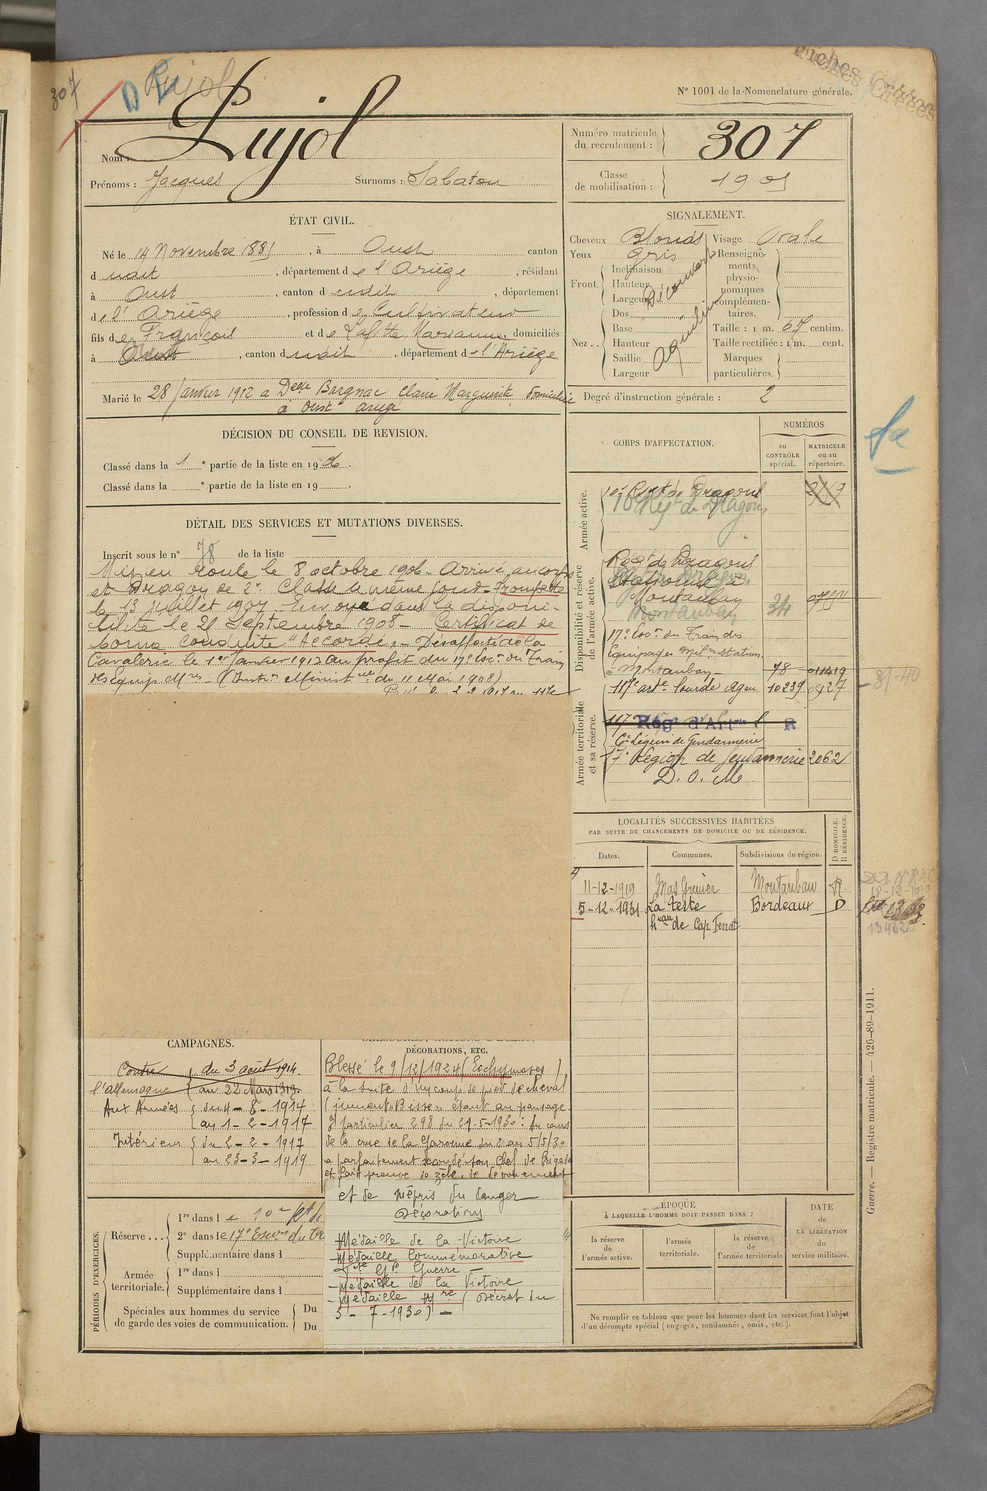 307
Pujol
Archives
N° 1001 de la Nomenclature générale.
Nom : Pujol
Prénoms : Jacques Surnoms : Sabatou
Numéro matricule du recrutement : 307
Classe de mobilisation : 1901
ÉTAT CIVIL.
Né le 14 Novembre 1881, à Oust canton
d udit, département de l'Ariège, résidant
à Oust, canton d udit, département
de l'Ariège, profession de Cultivateur
fils de François et de Lafitte Marianne domiciliés
à Oust, canton d udit, département de l'Ariège
Marié le 28 Janvier 1912 a Delle Bergnac Claire Marguerite domiciliée
à Oust Ariège
SIGNALEMENT.
Cheveux Blonds Visage Ovale
Yeux gris
Front. Inclinaison
Hauteur
Largeur
Découvert
Nez. Dos
Base
Hauteur
Saillie
Largeur
Aquilin
Renseignements physionomiques complémentaires.
Taille : 1 m. 67 centim.
Taille rectifiée : 1 m. cent.
Marques particulières.
Degré d'instruction générale : 2
DÉCISION DU CONSEIL DE REVISION.
Classé dans la 1e partie de la liste en 190
Classé dans la e partie de la liste en 19
DÉTAIL DES SERVICES ET MUTATIONS DIVERSES.
Inscrit sous le n° 78 de la liste
Mis en route le 8 octobre 1906. Arrivé au corps
et Dragon de 2e Classe le même jour. Trompette
le 13 juillet 1907. Envoyé dans la disponi-
bilité le 21 Septembre 1908. Certificat de
bonne conduite "Accordé". Désaffecté de la
Cavalerie le 1er Janvier 1912 au profit du 17e Esc. du Train
des Equip. Mres (Instr. Minist. du 11 Mai 1908)
CORPS D'AFFECTATION.
NUMÉROS
au CONTRÔLE spécial.
MATRICULE ou au répertoire.
Armée active.
10e Regt de Dragons
Disponibilité et réserve de l'armée active.
Regt de Dragons
Montauban
34
17e Esc. du Train des
Equipages Mil. Station.
Montauban 78
117e Arte lourde Agen 10239
Armée territoriale et sa réserve.
117 Reg. d'Art
Cie Légion de Gendarmerie
17e Légion de Gendarmerie 2062
D. O. M.
LOCALITÉS SUCCESSIVES HABITÉES
PAR SUITE DE CHANGEMENTS DE DOMICILE OU DE RÉSIDENCE.
Dates. Communes. Subdivisions de région. D DOMICILE. R RÉSIDENCE.
11-12-1919 Mas Grenier Montauban R
5-12-1931 La Teste Bordeaux D
de Cap Ferrat
CAMPAGNES.
Contre du 3 août 1914
l'allemagne au 22 Mars 1919
Aux Armées du 4-8-1914
au 1-2-1917
Intérieur du 2-2-1917
au 23-3-1919
DÉCORATIONS, ETC.
Blessé le 9/12/1924 (Ecchymoses)
à la suite d'un coup de pied de cheval
(jument Bisse) étant au pansage
particulier 298 du 29-5-1930 : Au cours
de la crue de la Garonne du 2 au 5/3/30
a parfaitement secondé son Chef de Brigade
et fait preuve de zèle, de dévouement
et de mépris du danger
Décorations
Médaille de la Victoire
Médaille Commémorative
Gde Guerre
Médaille de la Victoire
Médaille Mre (Décret du
5-7-1930)
PÉRIODES D'EXERCICES.
Réserve... 1re dans le 10e
2e dans le 17e Escon du Train
Supplémentaire dans l
Armée territoriale. 1re dans l
Supplémentaire dans l
Spéciales aux hommes du service de garde des voies de communication. Du
Du
ÉPOQUE
À LAQUELLE L'HOMME DOIT PASSER DANS :
la réserve de l'armée active.
l'armée territoriale.
la réserve de l'armée territoriale
DATE de LA LIBÉRATION du service militaire.
Ne remplir ce tableau que pour les hommes dont les services font l'objet
d'un décompte spécial (engagés, condamnés, omis, etc.).
Guerre. — Registre matricule. — 426-89-1911.